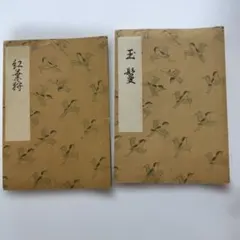 紅葉狩
玉鬘